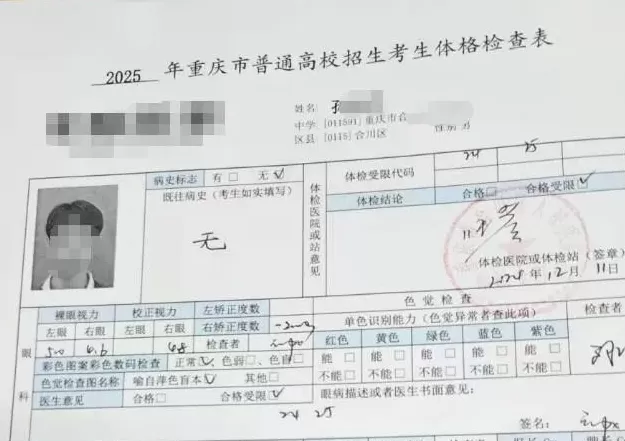 2025 年重庆市普通高校招生考生体格检查表
姓名
中学 [011591] 重庆市合
性别 男
区县 [0115] 合川区
病史标志 有□ 无☑
既往病史（考生如实填写）
无
体检医院或站意见
体检受限代码 24 25
体检结论 合格□ 合格受限☑
体检医院或体检站（签章）
2024年12月11日
眼科
裸眼视力 校正视力 左矫正度数
左眼 右眼 左眼 右眼 右矫正度数
5.0 4.6 4.8 检查者
彩色图案彩色数码检查 正常☑ 色弱□ 色盲□
色觉检查图名称 喻自萍色盲本☑ 其他□
医生意见 合格□ 合格受限☑
24 25
色觉检查
单色识别能力（色觉异常者查此项） 检查者
红色 黄色 绿色 蓝色 紫色
能□ 能□ 能□ 能□ 能□
不能□ 不能□ 不能□ 不能□ 不能□
眼病描述或者医生书面意见：
签名：